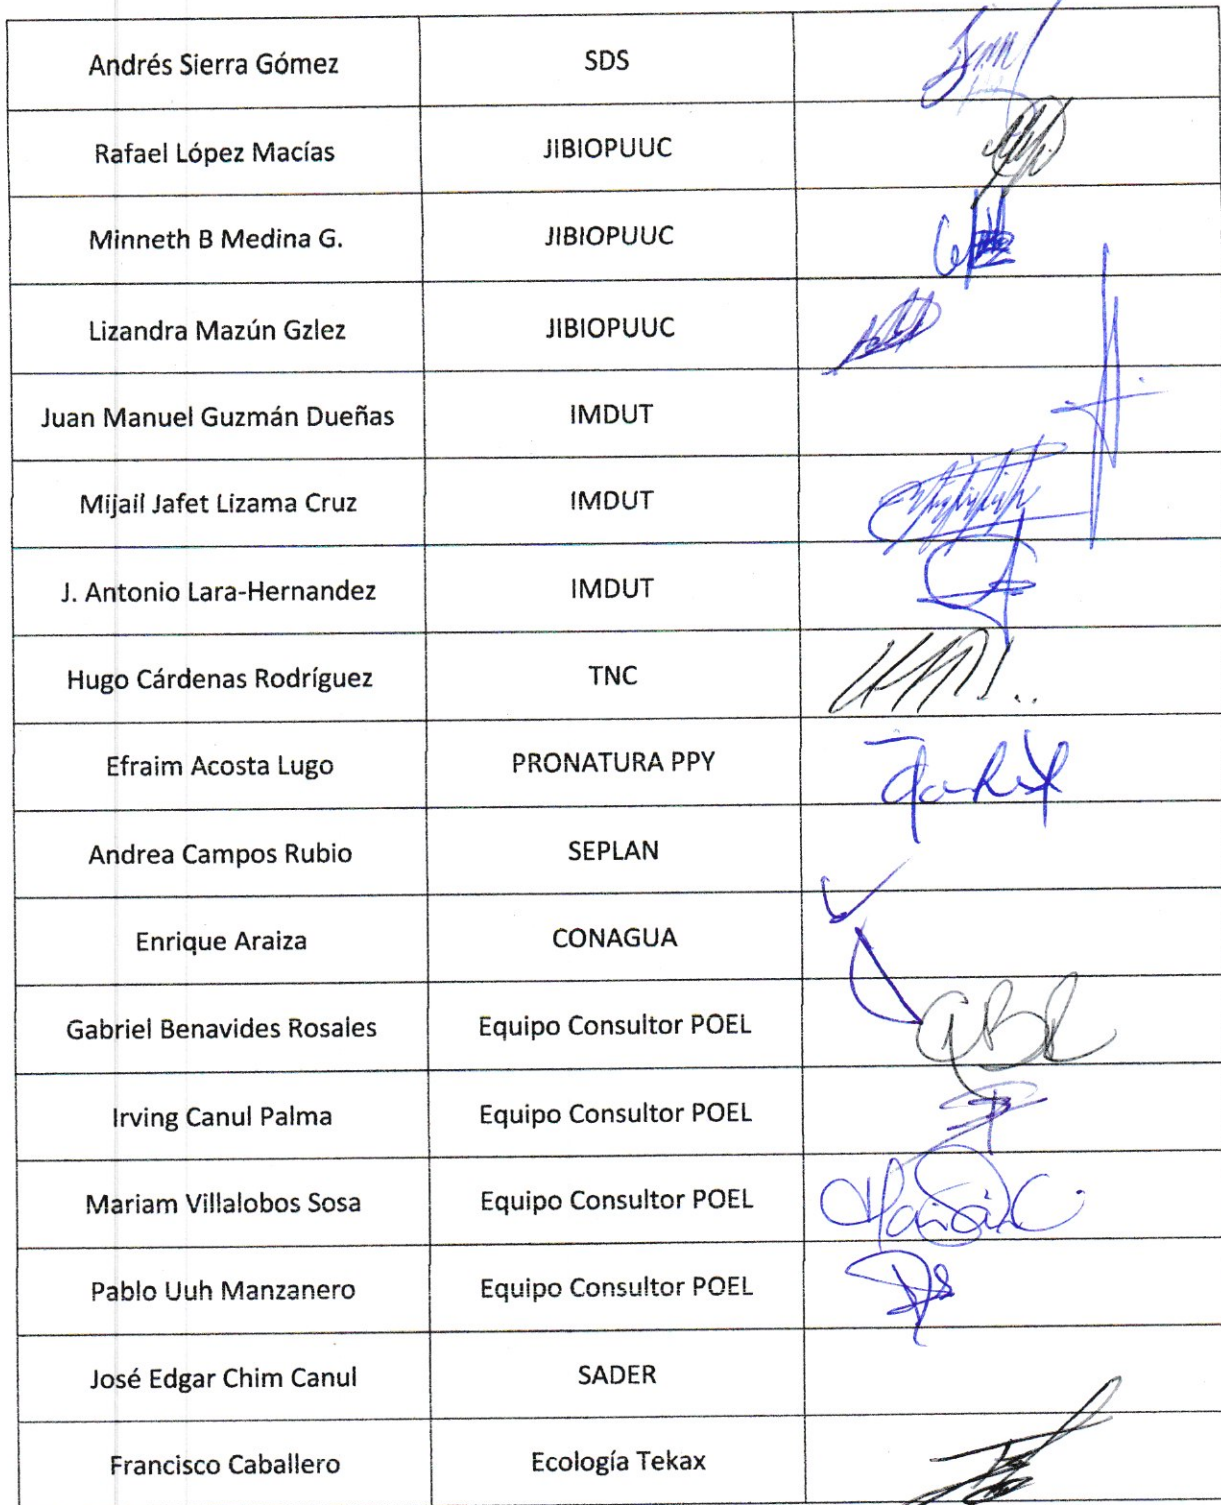 Andrés Sierra Gómez SDS
Rafael López Macías JIBIOPUUC
Minneth B Medina G. JIBIOPUUC
Lizandra Mazún Gzlez JIBIOPUUC
Juan Manuel Guzmán Dueñas IMDUT
Mijail Jafet Lizama Cruz IMDUT
J. Antonio Lara-Hernandez IMDUT
Hugo Cárdenas Rodríguez TNC
Efraim Acosta Lugo PRONATURA PPY
Andrea Campos Rubio SEPLAN
Enrique Araiza CONAGUA
Gabriel Benavides Rosales Equipo Consultor POEL
Irving Canul Palma Equipo Consultor POEL
Mariam Villalobos Sosa Equipo Consultor POEL
Pablo Uuh Manzanero Equipo Consultor POEL
José Edgar Chim Canul SADER
Francisco Caballero Ecología Tekax